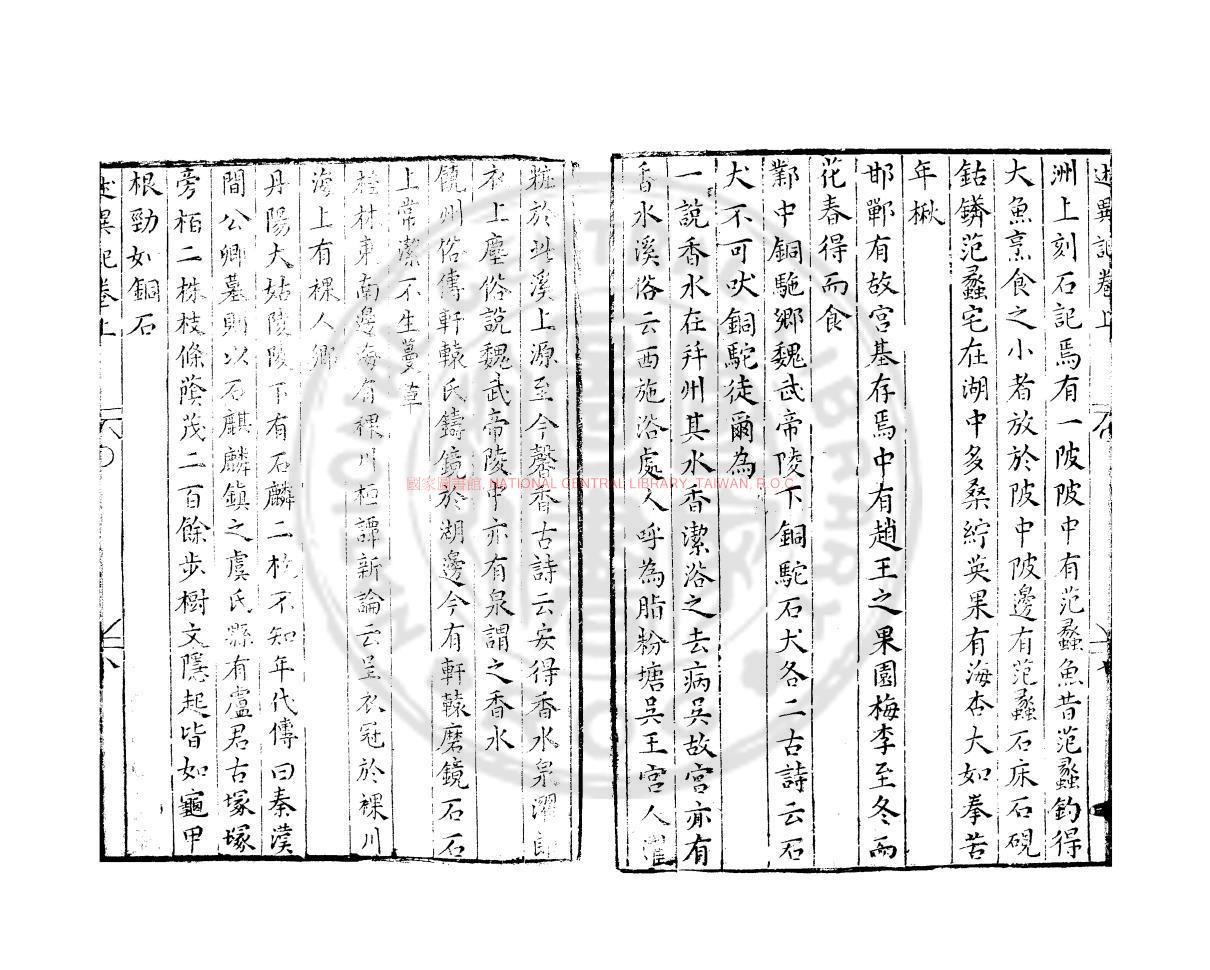 述異記卷上
洲上刻石記焉有一陂陂中有范蠡魚昔范蠡釣得
大魚烹食之小者放於陂中陂邊有范蠡石床石硯
鈷鏻范蠡宅在湖中多桑紵英果有海杏大如拳苦
年楸
邯鄲有故宮基存焉中有趙王之果園梅李至冬而
花春得而食
鄴中銅駞鄉魏武帝陵下銅駝石犬各二古詩云石
犬不可吠銅駝徒爾為
一說香水在幷州其水香潔浴之去病吳故宮亦有
香水溪俗云西施浴處人呼為脂粉塘吳王宮人濯
粧於此溪上源至今馨香古詩云安得香水泉濯郎
衣上塵俗說魏武帝陵中亦有泉謂之香水
饒州俗傳軒轅氏鑄鏡於湖邊今有軒轅磨鏡石石
上常潔不生蔓草
桂林東南邊海有裸川桓譚新論云呈衣冠於裸川
海上有裸人鄉
丹陽大姑陵陵下有石麟二枚不知年代傳曰秦漢
間公卿墓則以石麒麟鎮之虞氏縣有盧君古塚塚
旁栢二株枝條蔭茂二百餘步樹文隱起皆如龜甲
根勁如銅石
述異記卷上
六
國家圖書館, NATIONAL CENTRAL LIBRARY, TAIWAN, R.O.C.